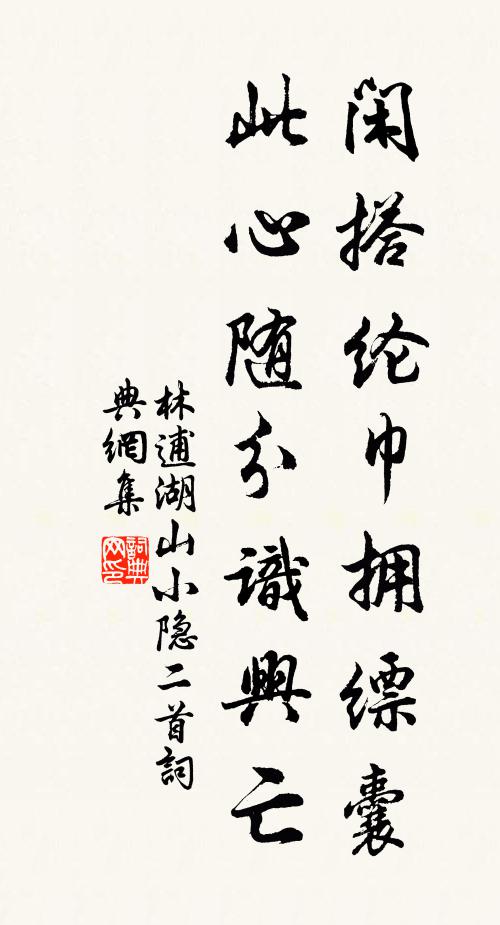 闲搭纶巾拥缥囊
此心随分識興亡
林逋湖山小隐二首詞
典網集
詞典网印